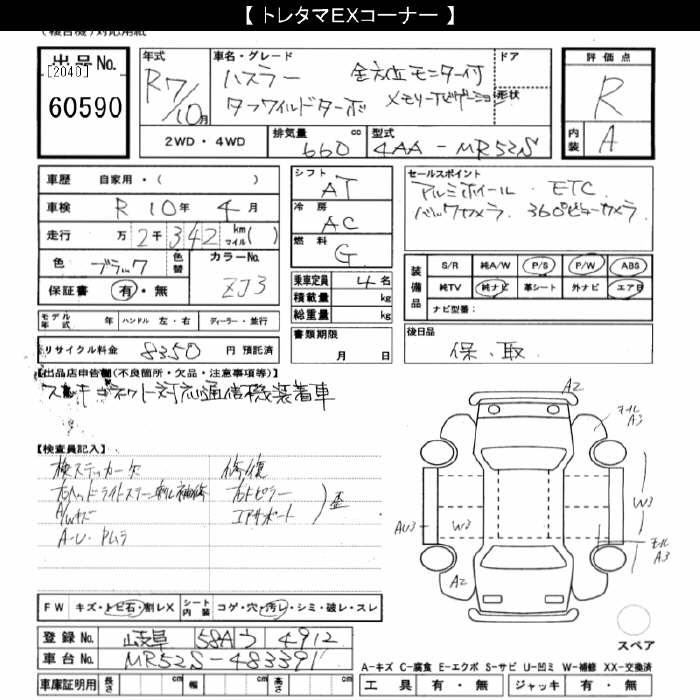 【 トレタマEXコーナー 】
(複合機)対応用紙
出品No. [2040] 60590
年式 R7/10月
車名・グレード ハスラー 全方位モニター付
タフワイルドターボ メモリーナビゲーション
ドア 形状
2WD・4WD 排気量 660 cc 型式 4AA-MR52S
評価点 R
内装 A
車歴 自家用・( )
車検 R 10年 4月
走行 万 2千 342 km マイル( )
色 ブラック 色替 カラーNo. ZJ3
保証書 有・無
モデル年式 年 ハンドル 左・右 ディーラー・並行
リサイクル料金 8350 円 預託済
シフト AT
冷房 AC
燃料 G
乗車定員 4名
積載量 kg
総重量 kg
書類期限 月 日
セールスポイント
アルミホイール・ETC
バックカメラ・360°ビューカメラ
装備品 S/R 純A/W P/S P/W ABS
純TV 純ナビ 革シート 外ナビ エアB
ナビ型番:
後日品
保・取
【出品店申告欄(不良箇所・欠品・注意事項等)】
スズキコネクト対応通信機装着車
【検査員記入】
検ステッカー欠
右ヘッドライトステー刺し補修
A/Wキズ
A-U・Pムラ
修復
右トピラー
エアサポート
歪
A2
ホイール A3
W3
AU3
W3
モール A3
A2
スペア
FW キズ・トビ石・割レX シート内装 コゲ・穴・汚レ・シミ・破レ・スレ
登録No. 岐阜 58A つ 4912
車台No. MR52S-483391
車庫証明用 長さ cm 幅 cm 高さ cm
A-キズ C-腐食 E-エクボ S-サビ U-凹ミ W-補修 XX-交換済
工具 有・無 ジャッキ 有・無